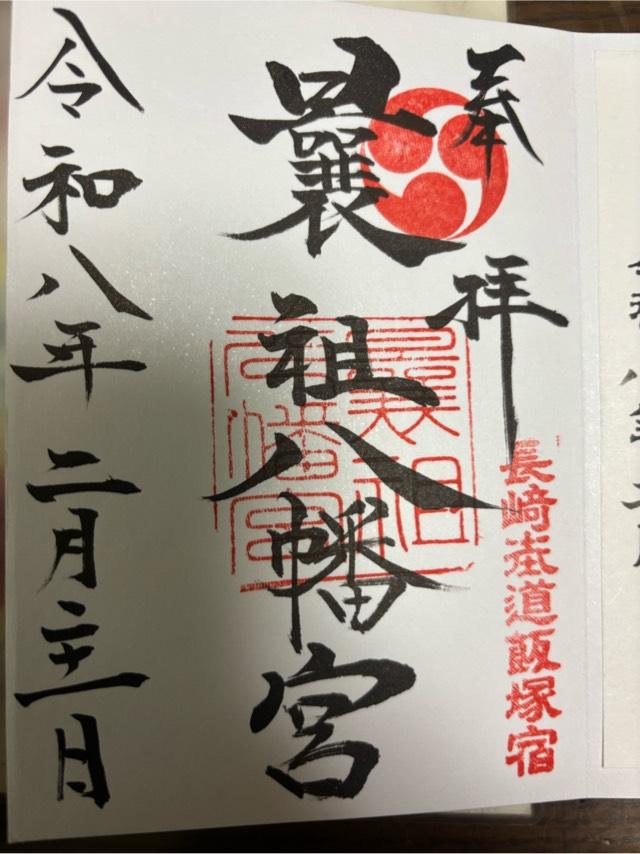 奉拝
長崎街道飯塚宿
曩祖八幡宮
曩祖
八幡宮
令和八年二月二十一日